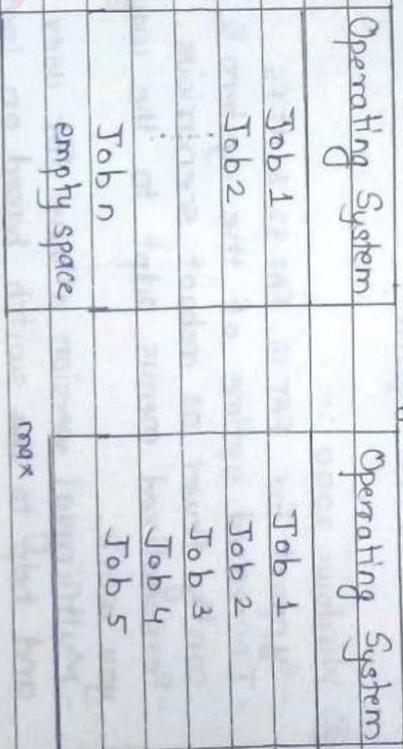 Operating System
Job 1
Job 2
.
.
Job n
empty space
Operating System
Job 1
Job 2
Job 3
Job 4
Job 5
max